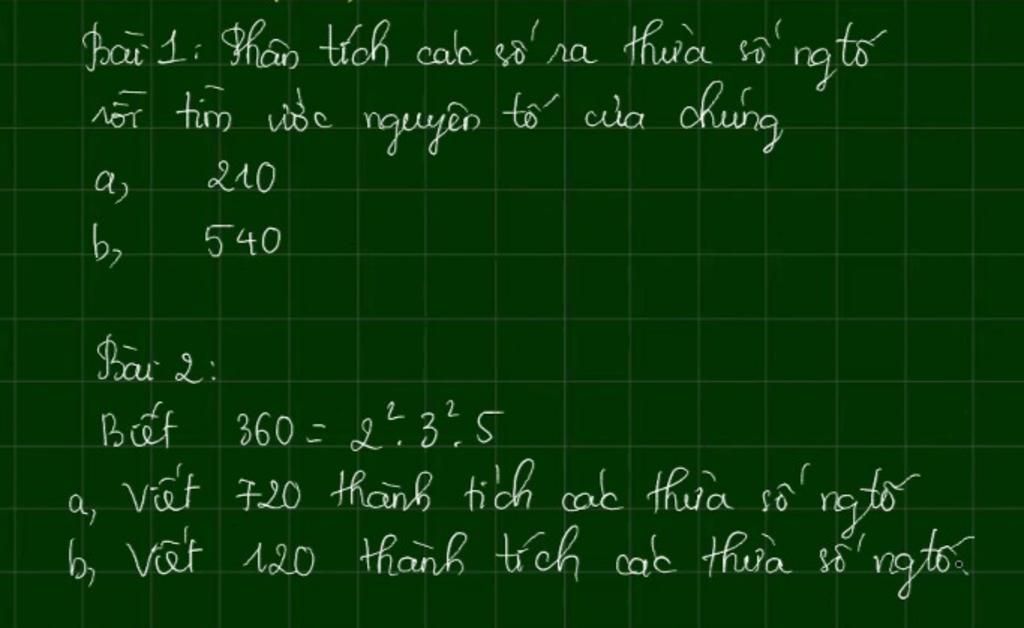 Bài 1: Phân tích các số ra thừa số ngtố
rồi tìm ước nguyên tố của chúng
a, 210
b, 540
Bài 2:
Biết 360 = 2². 3². 5
a, Viết 720 thành tích các thừa số ngtố
b, Viết 120 thành tích các thừa số ngtố.